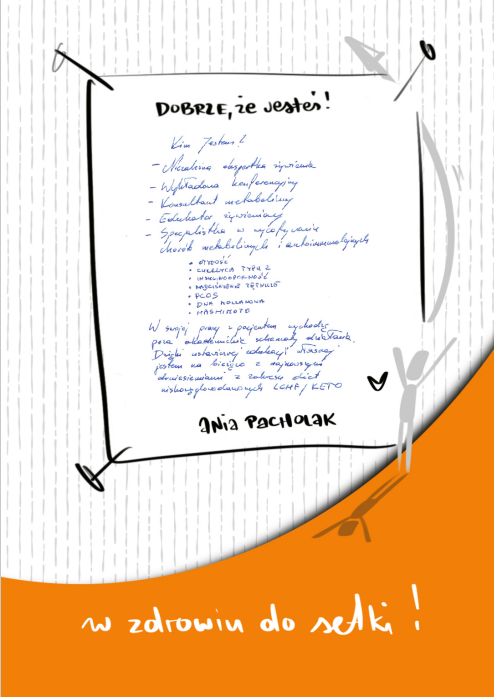 DOBRZE, że jesteś!
Kim Jestem?
- Niezależna ekspertka żywienia
- Wykładowca konferencyjny
- Konsultant metaboliczny
- Edukator żywieniowy
- Specjalistka w wycofywaniu
chorób metabolicznych i autoimmunologicznych
• OTYŁOŚĆ
• CUKRZYCA TYPU 2
• INSULINOOPORNOŚĆ
• NADCIŚNIENIE TĘTNICZE
• PCOS
• DNA MOCZANOWA
• HASHIMOTO
W swojej pracy z pacjentem wychodzę
poza akademickie schematy działania.
Dzięki ustawicznej edukacji własnej
jestem na bieżąco z najnowszymi
doniesieniami z zakresu diet
niskowęglowodanowych LCHF/KETO
ANIA PACHOLAK
w zdrowiu do setki!